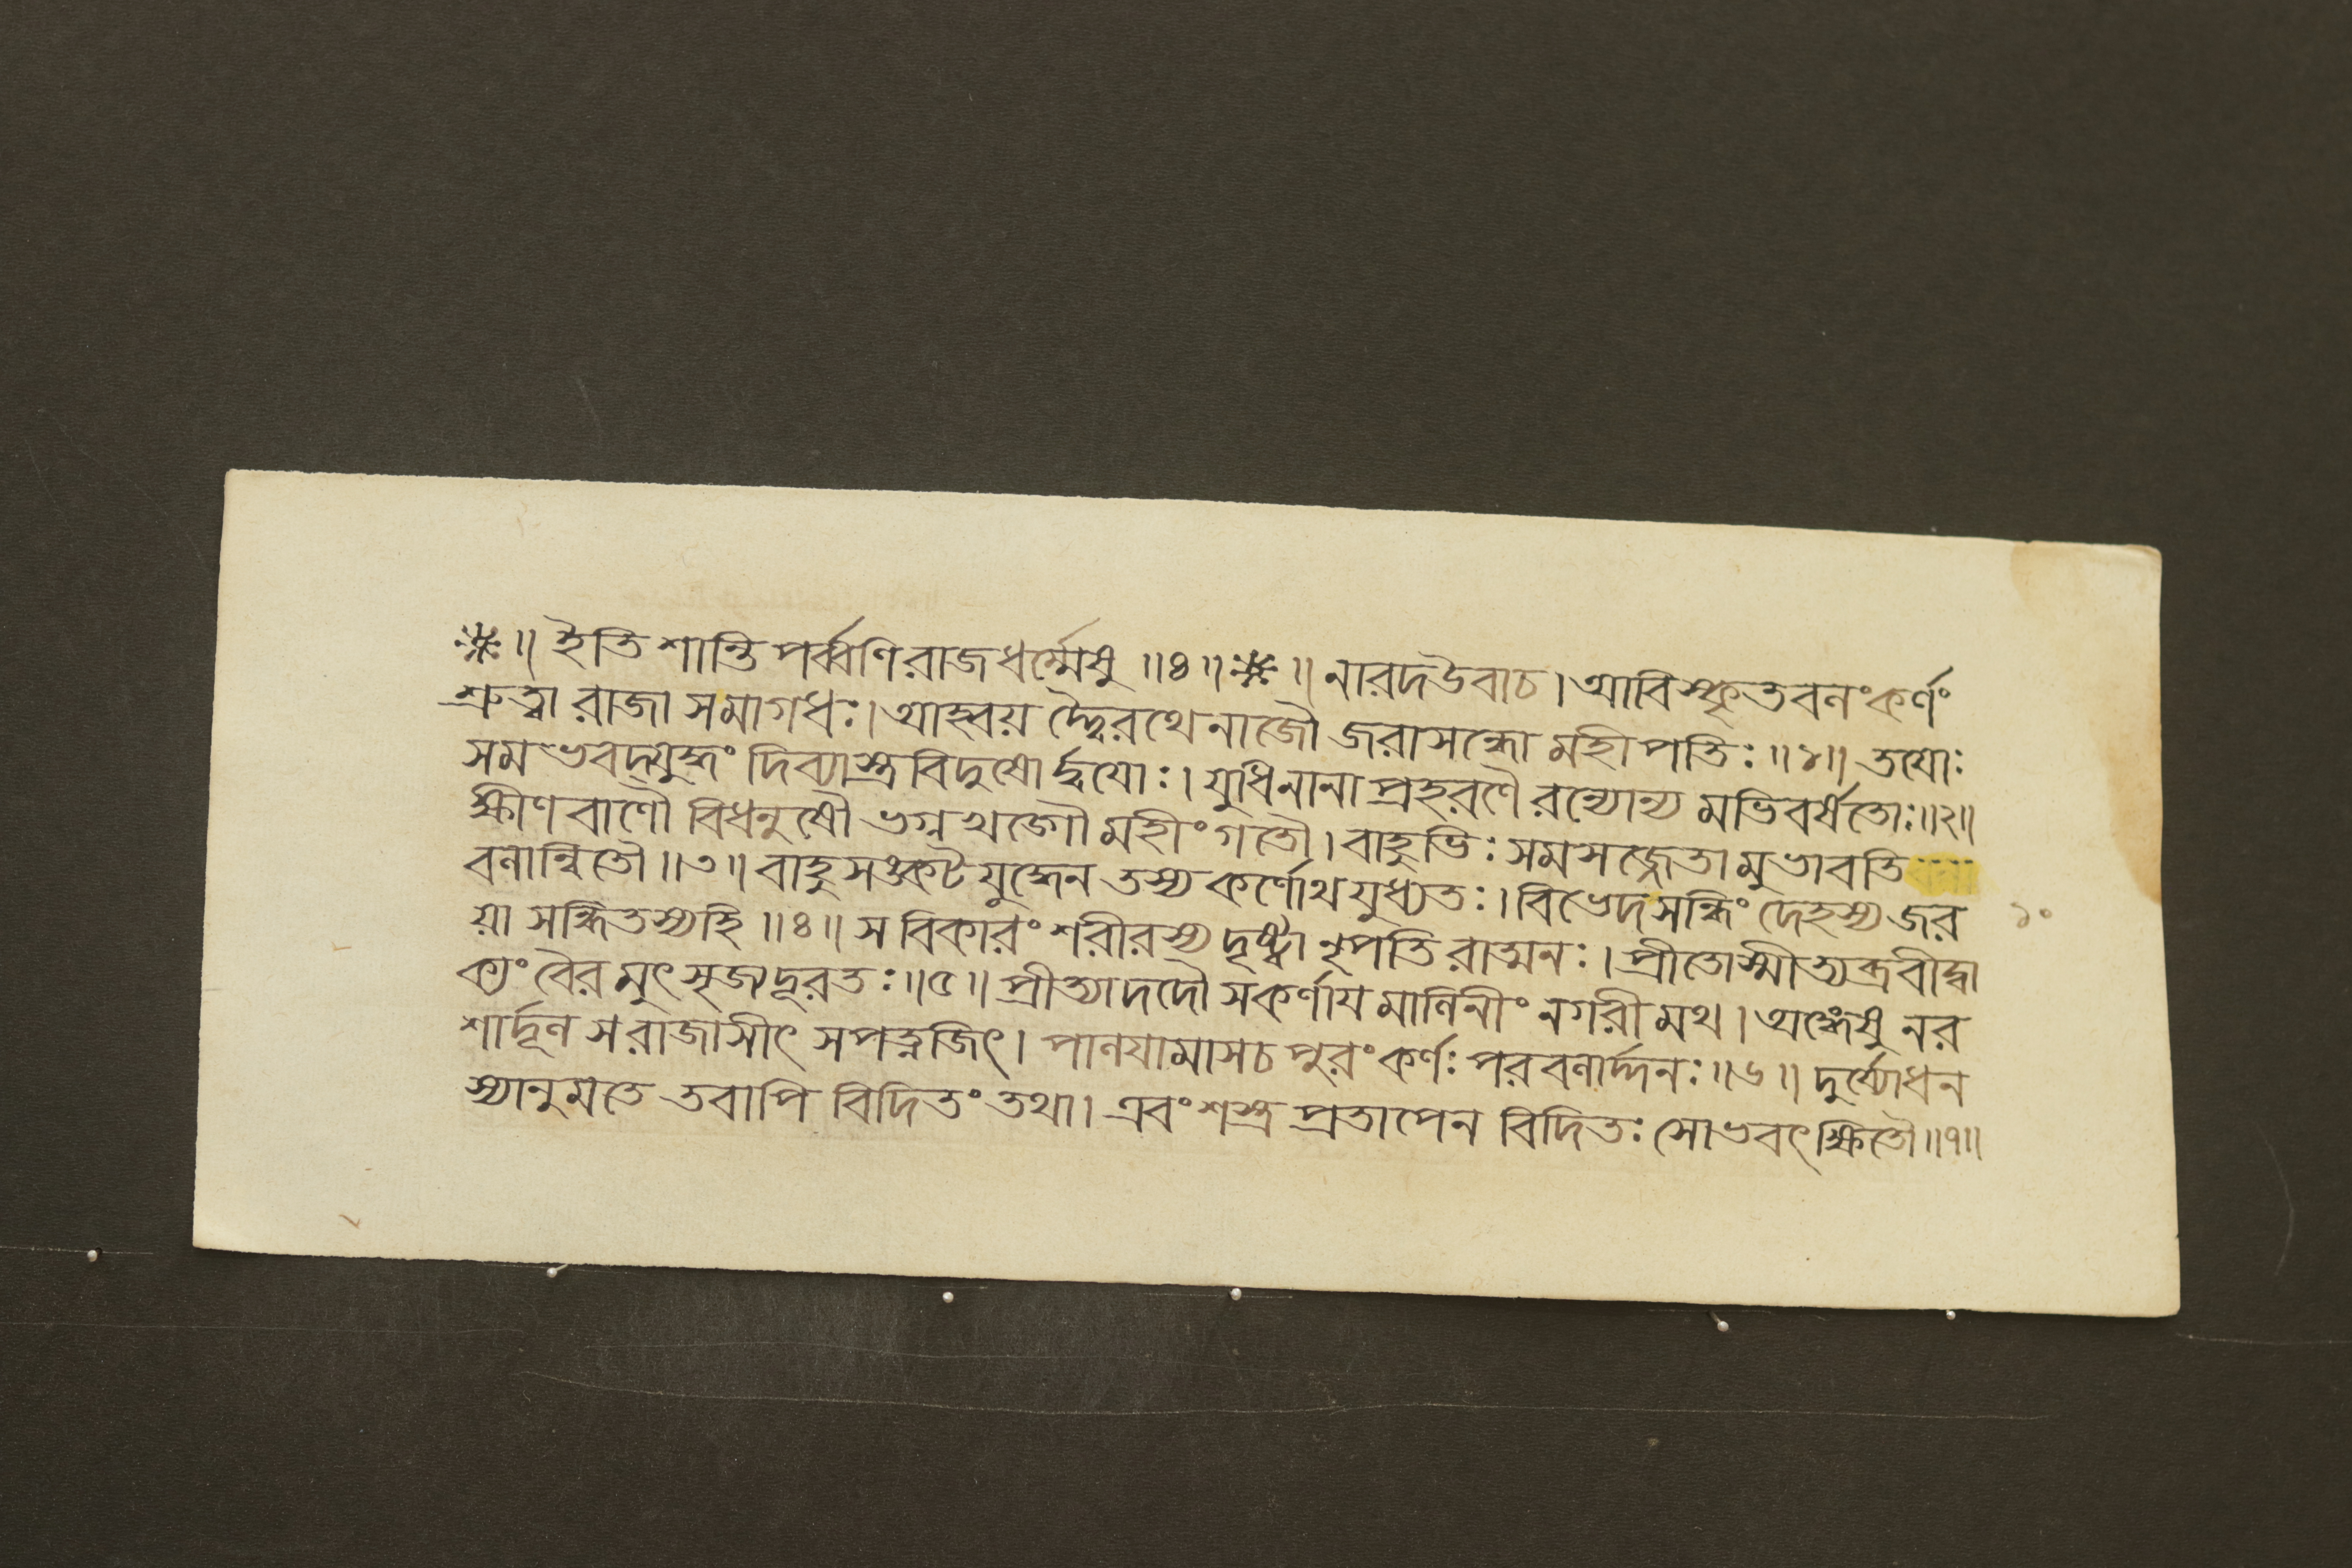 ※॥ ইতি শান্তি পর্ব্বণি রাজধর্ম্মেষু ॥৪॥※॥ নারদউবাচ। আবিস্কৃতবলংকর্ণং
শ্রুত্বা রাজা সমাগধঃ। আহ্বয় দ্দ্বৈরথেনাজৌ জরাসন্ধো মহীপতিঃ ॥১॥ তযোঃ
সমভবদ্যুদ্ধং দিব্যাস্ত্রবিদুষোর্দ্বযোঃ। যুধিনানা প্রহরণৈ রন্যোন্য মভিবর্ষতোঃ॥২॥
ক্ষীণবাণৌ বিধনুষৌ ভগ্নখড্গৌ মহীং গতৌ। বাহুভিঃ সমসজ্জেতা মুভাবতি
বলান্বিতৌ ॥৩॥ বাহুসঙ্কট যুদ্ধেন তস্য কর্ণোথযুধ্যতঃ। বিভেদসন্ধিং দেহস্য জর
য়া সন্ধিতস্যহি ॥৪॥ স বিকারং শরীরস্য দৃষ্ট্বা নৃপতি রাত্মনঃ। প্রীতোস্মীত্যব্রবীদ্বা
ক্যং বৈর মুৎসৃজ্যদূরতঃ॥৫॥ প্রীত্যাদদৌ সকর্ণায মালিনীং নগরীমথ। অঙ্গেষু নর
শার্দ্দূল সরাজাসীৎ সপত্নজিৎ। পালযামাসচ পুরং কর্ণঃ পরবলার্দ্দনঃ॥৬॥ দুর্য্যোধন
স্যানুমতে তবাপি বিদিতং তথা। এবং শস্ত্র প্রতাপেন বিদিতঃ সোভবৎক্ষিতৌ॥৭॥
১০